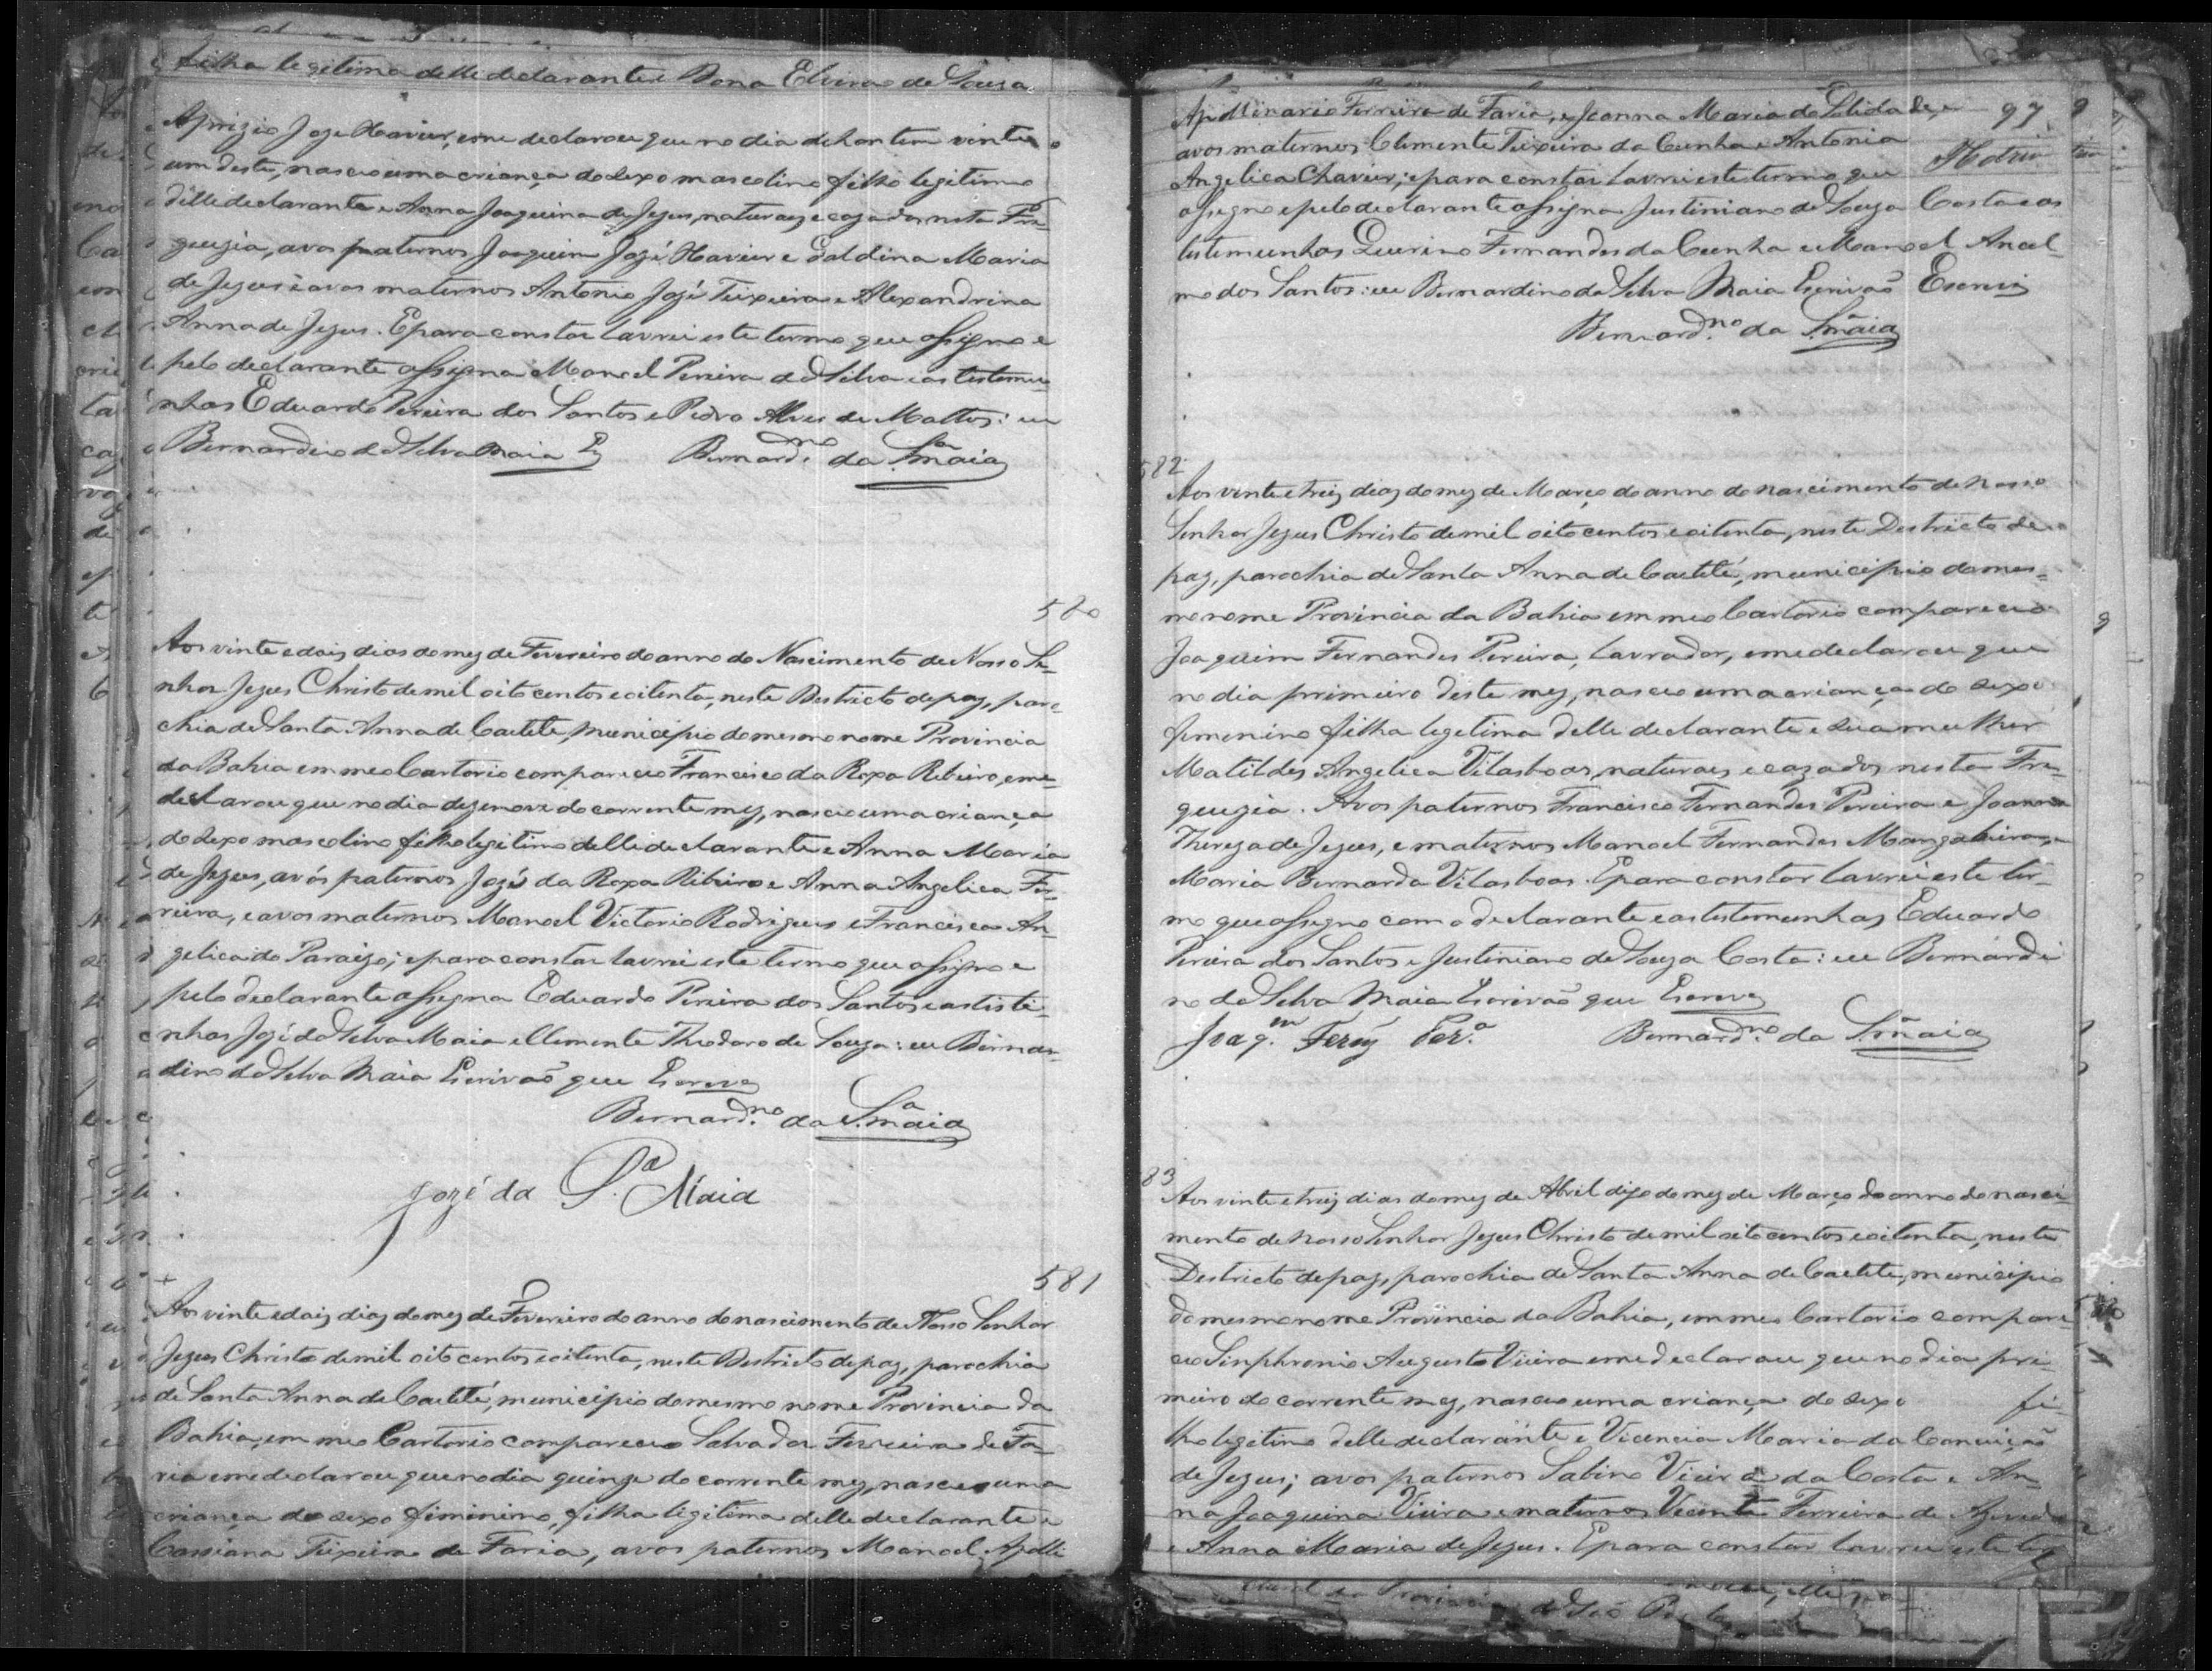 filha legitima delle declarante e Dona Elvira de Souza
Aprizio Jozé Xavier, e me declarou que no dia de hontem vinte e
um deste, nasceo uma criança do sexo mascolino filho legitimo
delle declarante e Anna Joaquina de Jezus, naturaes e cazados nesta Fre-
guezia, avos paternos Joaquim José Xavier e Galdina Maria
de Jezus e avos maternos Antonio José Teixeira e Alexandrina
Anna de Jezus. E para constar lavrei este termo que assigno e
pelo declarante assigna Manoel Pereira da Silva e as testemu-
nhas Eduardo Pereira dos Santos e Pedro Alves de Mattos: eu
Bernardino da Silva Maia Es Bernard.no da S.a Maia
580
Aos vinte e dois dias do mez de Fevereiro do anno do Nascimento de Nosso Se-
nhor Jezus Christo de mil oito centos e oitenta, neste Destricto de paz, paro-
chia de Santa Anna de Caetité, Municipio do mesmo nome Provincia
da Bahia em meo Cartorio compareceo Francisco da Roxa Ribeiro, e me
declarou que no dia dezenove do corrente mez, nasceo uma criança
do sexo mascolino filho legitimo delle declarante e Anna Maria
de Jezus, avós paternos José da Roxa Ribeiro e Anna Angelica Fer-
reira, e avos maternos Manoel Victorio Rodrigues e Francisca An-
gelica do Paraizo; e para constar lavrei este termo que assigno e
pelo declarante assigna Eduardo Pereira dos Santos e as teste-
nhas José da Silva Maia e Clemente Theodoro de Souza: eu Bernar-
dino da Silva Maia Escrivaõ que Escrevy
Bernard.no da S.a Maia
Jozé da S.a Maia
581
Aos vinte e dois dias do mez de Fevereiro do anno do nascimento de Nosso Senhor
Jezus Christo de mil oito centos e oitenta, neste Destricto de paz, parochia
de Santa Anna de Caetité, municipio do mesmo nome Provincia da
Bahia, em meo Cartorio compareceo Salvador Ferreira de Fa-
ria e me declarou que no dia quinze do corrente mez, nasceo uma
criança do sexo feminino, filha legitima delle declarante e
Cassiana Teixeira de Faria, avos paternos Manoel Apolli
Apollinario Ferreira de Faria, e Joanna Maria da Soledade, e 97
avos maternos Clemente Teixeira da Cunha e Antonia
Angelica Chavier; e para constar lavrei este termo que
assigno e pelo declarante assigna Justiniano de Souza Costa e as
testemunhas Quirino Fernandes da Cunha e Manoel Ancel-
mo dos Santos: eu Bernardino da Silva Maia Escrivaõ Escrevy
Bernard.no da S.a Maia
582
Aos vinte e treis dias do mez de Março do anno do nascimento de Nosso
Senhor Jezus Christo de mil oito centos e oitenta, neste Destricto de
paz, parochia de Santa Anna de Caetité, municipio do mes-
mo nome Provincia da Bahia em meo Cartorio compareceo
Joaquim Fernandes Pereira, lavrador, e me declarou que
no dia primeiro deste mez, nasceo uma criança do sexo
femenino filha legetima delle declarante e sua mulher
Matildes Angelica Vilasboas, naturaes e cazados nesta Fre-
guezia. Avos paternos Francisco Fernandes Pereira e Joanna
Thereza de Jezus, e maternos Manoel Fernandes Mangabeira, e
Maria Bernarda Vilasboas. E para constar lavrei este ter-
mo que assigno com o declarante e as testemunhas Eduardo
Pereira dos Santos e Justiniano de Souza Costa: eu Bernardi
no da Silva Maia Escrivaõ que Escrevy
Joaq.m Ferz Per.a Bernard.no da S.a Maia
83
Aos vinte e treis dias do mez de Abril digo do mez de Março do anno do nasci-
mento de Nosso Senhor Jezus Christo de mil oito centos e oitenta, neste
Destricto de paz, parochia de Santa Anna de Caetité, municipio
do mesmo nome Provincia da Bahia, em meo Cartorio compare-
ceo Sinphronio Augusto Vieira e me declarou que no dia pri-
meiro do corrente mez, nasceo uma criança do sexo fi-
lho legitimo delle declarante e Vicencia Maria da Conceição
de Jezus; avos paternos Sabino Vieira da Costa e An-
na Joaquina Vieira e maternos Vicente Ferreira de Azevedo
e Anna Maria de Jezus. E para constar lavrei este ter